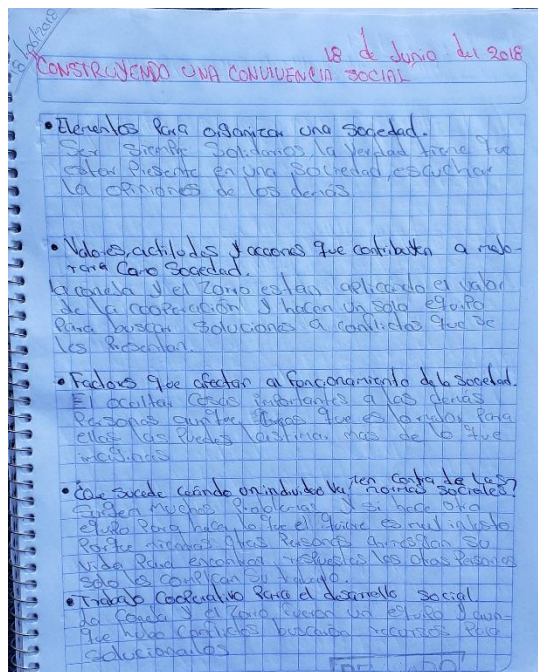 18/06/2018
18 de Junio del 2018
CONSTRUYENDO UNA CONVIVENCIA SOCIAL
• Elementos Para organizar una sociedad.
Ser siempre solidarios, la verdad tiene que
estar Presente en una sociedad, escuchar
la opiniones de los demás
• Valores, actitudes y acciones que contribuyen a mejo-
rar como sociedad.
la coneja y el zorro estan aplicando el valor
de la cooperación y hacen un solo equipo
Para buscar soluciones a conflictos que se
les Presentan.
• Factores que afectan al funcionamiento de la sociedad.
El ocultar cosas importantes a las demás
Personas aunque que es lo mejor Para
ellos las Puedes lastimar mas de lo que
imaginas
• Que sucede cuándo un individuo va en contra de las
normas sociales?
Surgen muchos Problemas y si hace otro
equipo Para hacer lo que el quiere es muy injusto
Porque mientras otras Personas arriesgan su
vida Para encontrar respuestas las otras Personas
solo les complican su trabajo.
• Trabajo cooperativo Para el desarrollo social
La coneja y el zorro fueron un equipo y aun-
que hubo conflictos buscaron recursos Para
solucionarlos